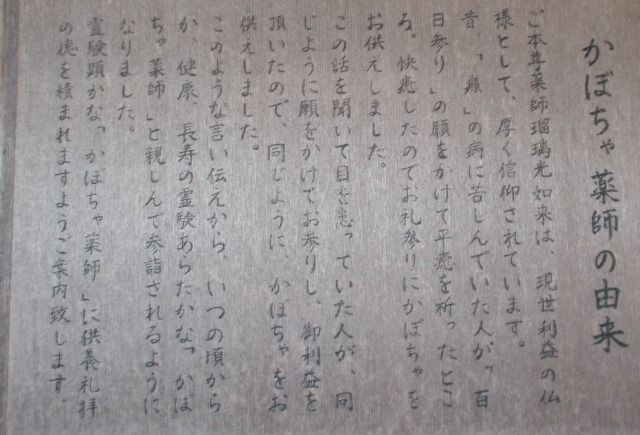 かぼちゃ薬師の由来
ご本尊薬師瑠璃光如来は、現世利益の仏
様として、厚く信仰されています。
昔、「癪」の病に苦しんでいた人が「百
日参り」の願をかけて平癒を祈ったとこ
ろ、快癒したのでお礼参りにかぼちゃを
お供えしました。
この話を聞いて目を患っていた人が、同
じように願をかけてお参りし、御利益を
頂いたので、同じように、かぼちゃをお
供えしました。
このような言い伝えから、いつの頃から
か、健康、長寿の霊験あらたかな「かぼ
ちゃ薬師」と親しんで参詣されるように
なりました。
霊験顕かな「かぼちゃ薬師」に供養礼拝
の徳を積まれますようご案内致します。